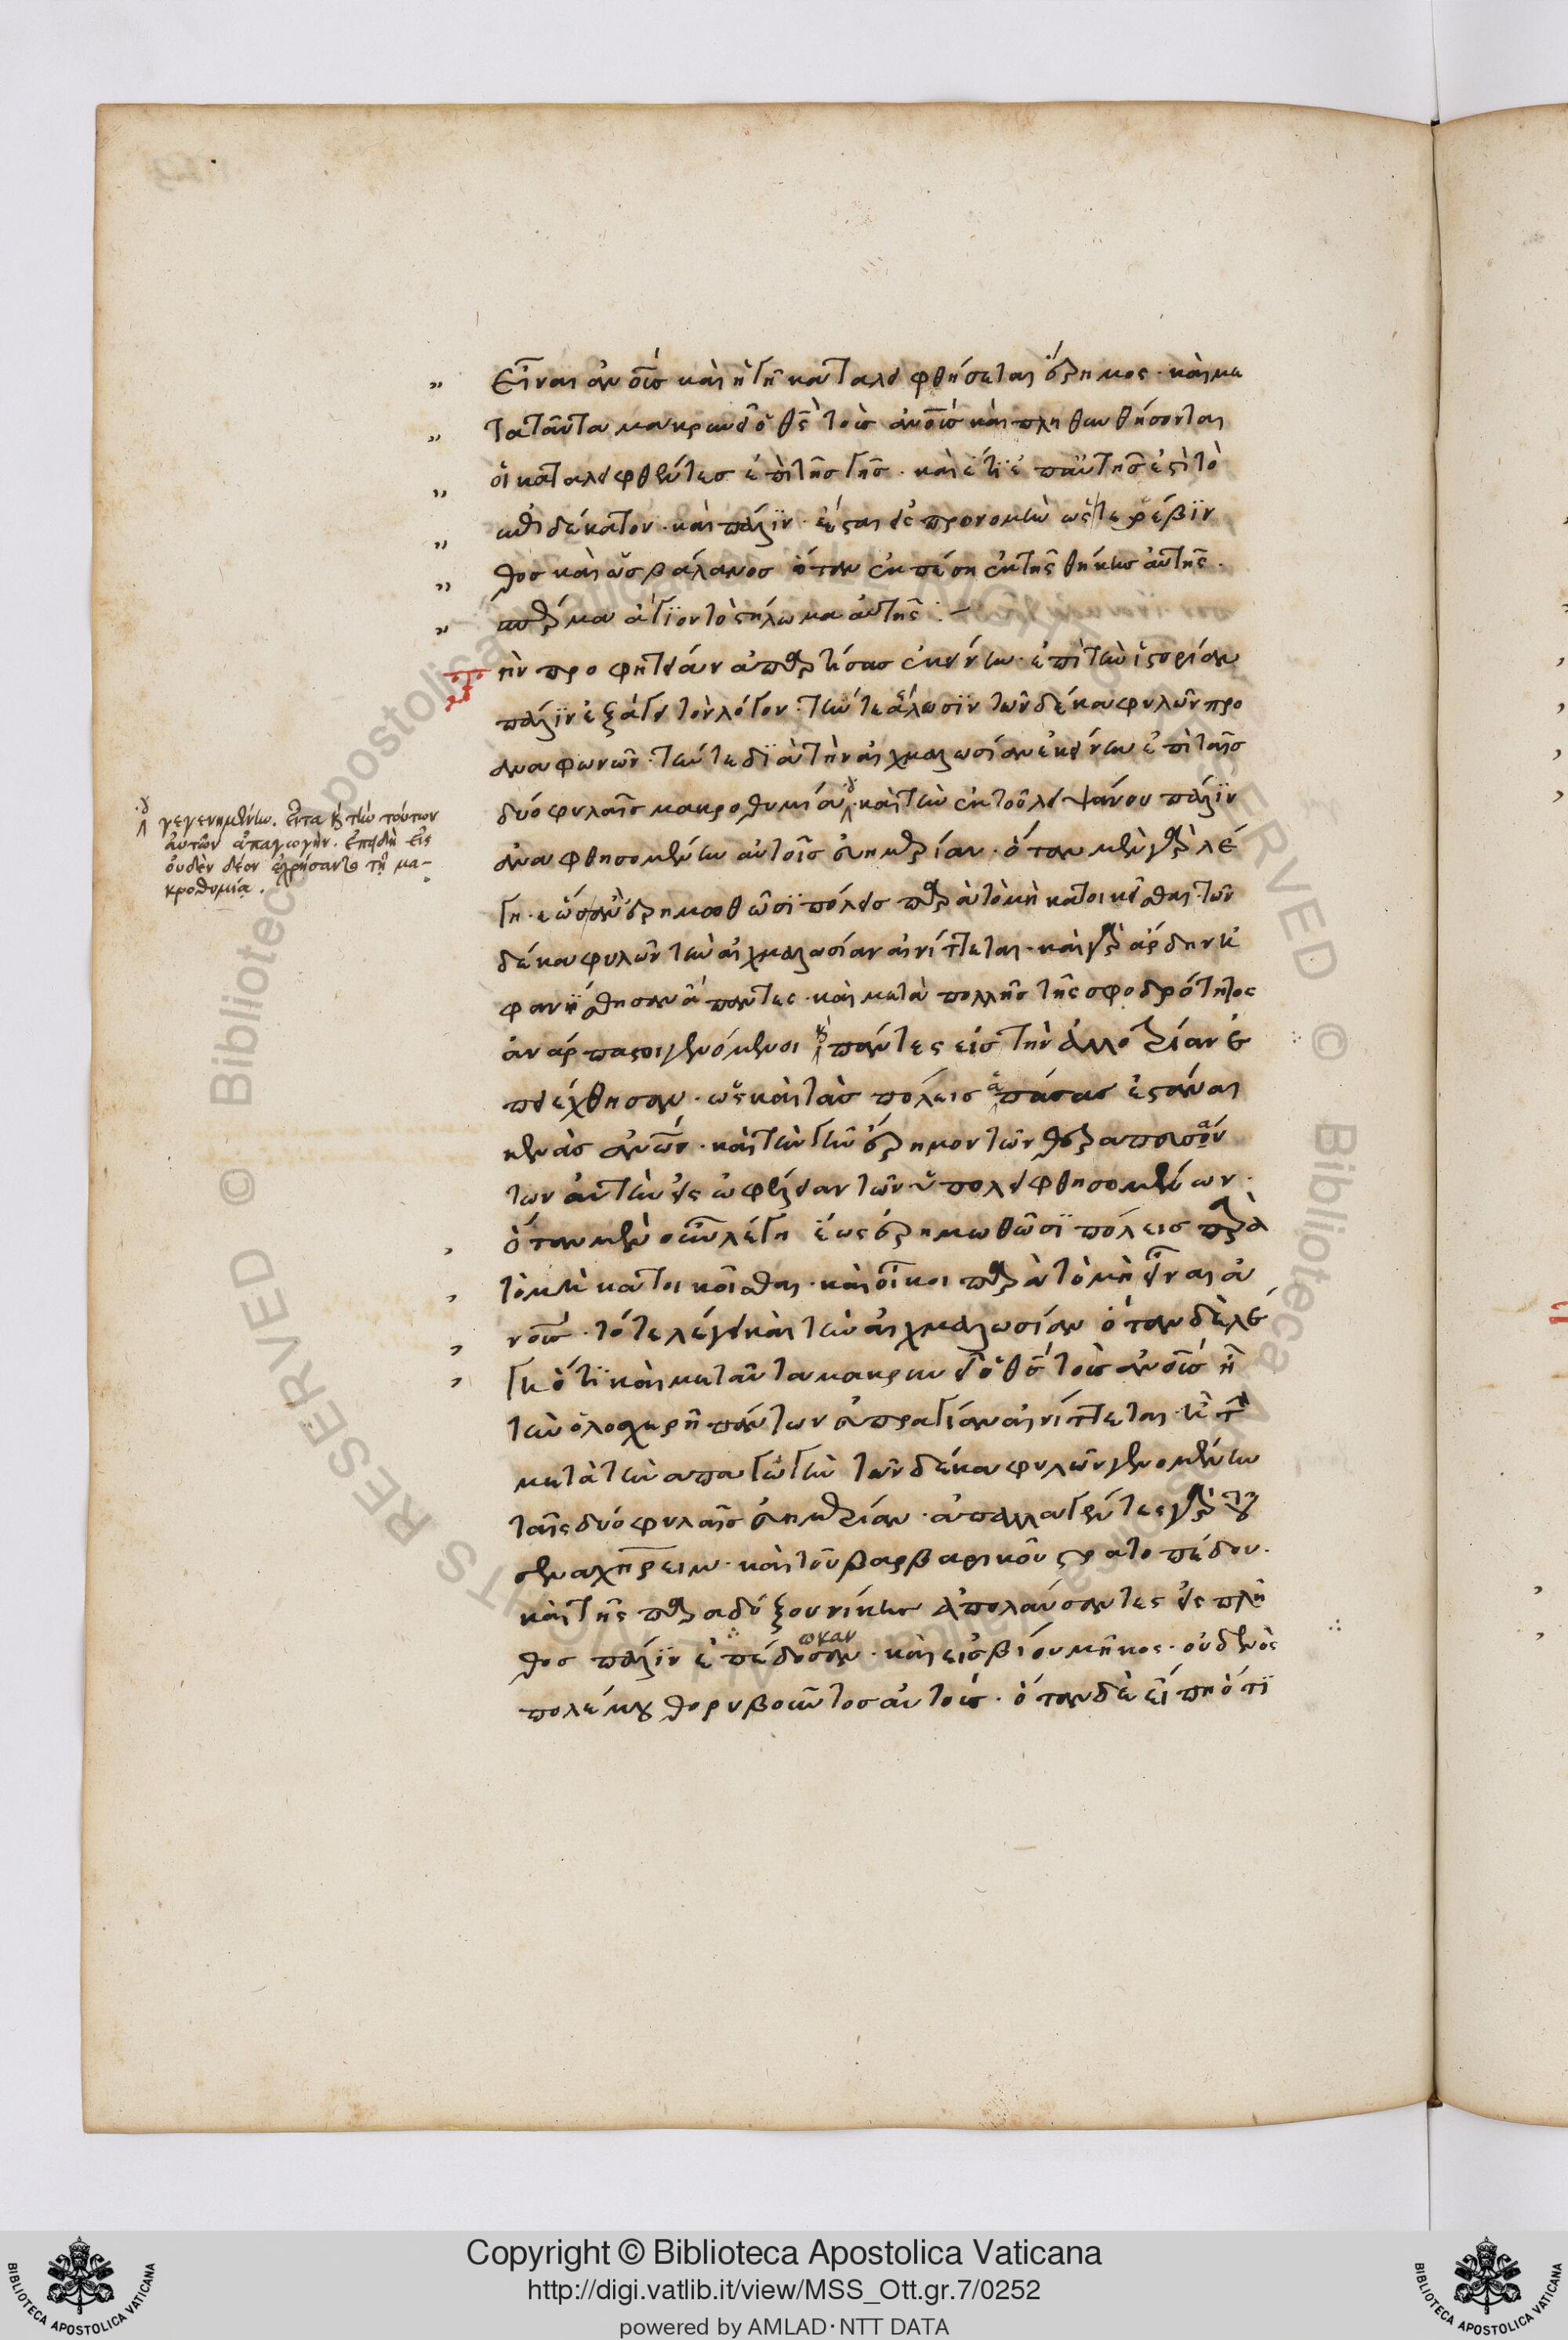 εἶναι ἀνοῖς καὶ ἡ γῆ καταλειφθήσεται ἔρημος. καὶ με
τὰ ταῦτα μακρυνεῖ ὁ θς τοὺς ἀνους καὶ πληθυνθήσονται
οἱ καταλειφθέντες ἐπὶ τῆς γῆς. καὶ ἔτι ἐπ' αὐτῆς ἐστὶ τὸ
ἐπιδέκατον. καὶ πάλιν ἔσται εἰς προνομὴν ὡς τερέβιν
θος καὶ ὡς βάλανος ὅταν ἐκπέσῃ ἐκ τῆς θήκης αὐτῆς.
σπέρμα ἅγιον τὸ στήλωμα αὐτῆς :
τὴν προφητείαν ἀπαρτίσας ἐκείνην. ἐπὶ τὴν ἱστορίαν
πάλιν ἐξάγει τὸν λόγον. τήν τε ἅλωσιν τῶν δέκα φυλῶν προ
αναφωνῶν. τήν τε διὰ τὴν αἰχμαλωσίαν ἐκείνην ἐπὶ ταῖς
δύο φυλαῖς μακροθυμίαν. καὶ τὴν ἐκ τοῦ λειψάνου πάλιν
ἀναφθησομένην αὐτοῖς εὐημερίαν. ὅταν μὲν γὰρ λέ
γῃ. ἕως ἂν ἐρημωθῶσι πόλεις παρὰ τὸ μὴ κατοικεῖσθαι. τῶν
δέκα φυλῶν τὴν αἰχμαλωσίαν αἰνίττεται. καὶ γὰρ ἄρδην ἠ
φανίσθησαν ἅπαντες. καὶ μετὰ πολλῆς τῆς σφοδρότητος
ἀνάρπαστοι γενόμενοι πάντες εἰς τὴν ἀλλοτρίαν ἐ
πείχθησαν. ὡς καὶ τὰς πόλεις ἁπάσας ἑστάναι
κενὰς ἀνων. καὶ τὴν γῆν ἔρημον τῶν θεραπευσόν
των αὐτὴν εἰς ὠφέλειαν τῶν ὑπολειφθησομένων.
ὅταν μὲν οὖν λέγῃ ἕως ἐρημωθῶσι πόλεις παρὰ
τὸ μὴ κατοικεῖσθαι. καὶ οἶκοι παρὰ τὸ μὴ εἶναι ἀ
νους. τότε λέγει καὶ τὴν αἰχμαλωσίαν ὅταν δὲ λέ
γῃ ὅτι καὶ μετὰ ταῦτα μακρυνεῖ ὁ θς τοὺς ἀνους
τὴν ὁλοσχερῆ πάντων εὐπραγίαν αἰνίττεται.
μετὰ τὴν απαγωγὴν τῶν δέκα φυλῶν γενομένην
ταῖς δύο φυλαῖς εὐημερίαν. ἀπαλλαγέντες γὰρ τοῦ
σεναχηρειμ. καὶ τοῦ βαρβαρικοῦ στρατοπέδου.
καὶ τῆς παραδόξου νίκης ἀπολαύσαντες εἰς πλῆ
θος πάλιν ἐπέδοσαν ωκαν. καὶ εἰς βίου μῆκος. οὐδενὸς
πολέμου θορυβοῦντος αὐτούς. ὅταν δὲ εἴπῃ ὅτι
γεγενημένην. εἶτα καὶ τὴν τούτων
αὐτῶν ἀπαγωγὴν. ἐπειδὴ εἰς
οὐδὲν δέον ἐχρήσαντο τῇ μα-
κροθυμίᾳ.
© Biblioteca Apostolica Vaticana ALL RIGHTS RESERVED
Copyright © Biblioteca Apostolica Vaticana
http://digi.vatlib.it/view/MSS_Ott.gr.7/0252
powered by AMLAD·NTT DATA
BIBLIOTECA APOSTOLICA VATICANA
BIBLIOTECA APOSTOLICA VATICANA